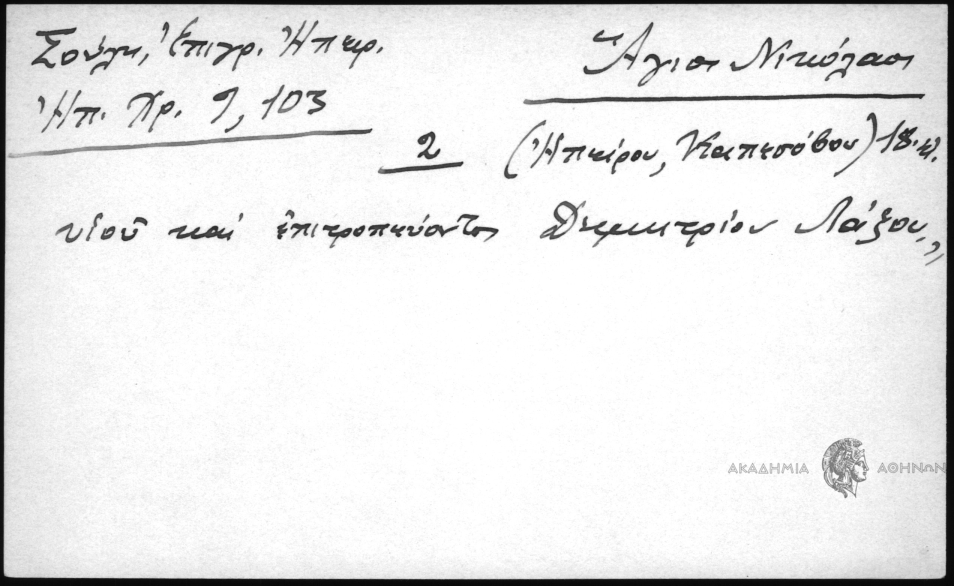 Σούλη, Ἐπιγρ. Ἠπειρ.
Ἠπ. Χρ. 9, 103
Ἅγιος Νικόλαος
2 (Ἠπείρου, Καπεσόβου) 18.
υἱοῦ καὶ ἐπιτροπεύοντος Δημητρίου Λάξου,,
ΑΚΑΔΗΜΙΑ ΑΘΗΝΩΝ